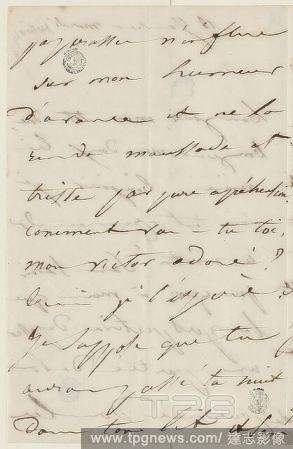 n'influe
sur mon humeur
d'avance et ne la
rende maussade et
triste par pure apréhension.
Comment vas-tu toi,
mon victor adoré ?
bien j'espère
Je suppose que tu
auras passé ta nuit
dans ton lit et
TPG
www.tpgnews.com / 達志影像